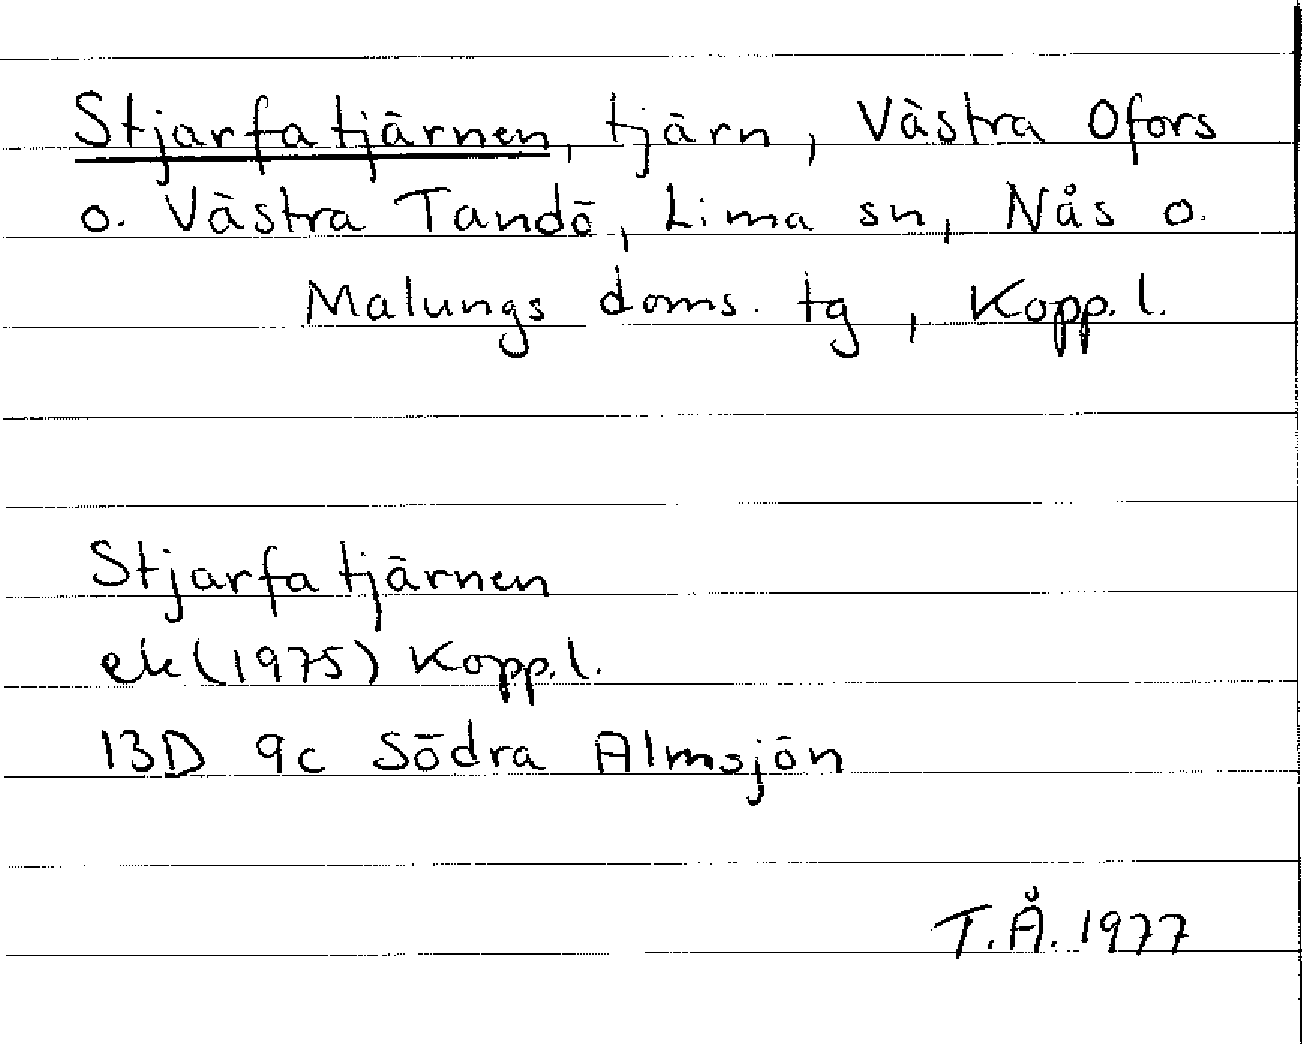 Stjarfatjärnen, tjärn, Västra Ofors
o. Västra Tandö, Lima sn, Nås o.
Malungs doms. tg, Kopp.l.
Stjarfatjärnen
ek (1975) Kopp.l.
13D 9c Södra Almsjön
T.Å. 1977